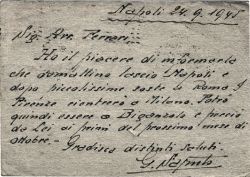 Napoli 24.9.1945
Sig. Avv. Ferrari
Ho il piacere di informarla
che domattina lascio Napoli e
dopo piccolissime soste a Roma e
Firenze rientrerò a Milano. Potrò
quindi essere a e perciò
da Lei ai primi del prossimo mese di
ottobre.
Gradisca distinti saluti.
G.